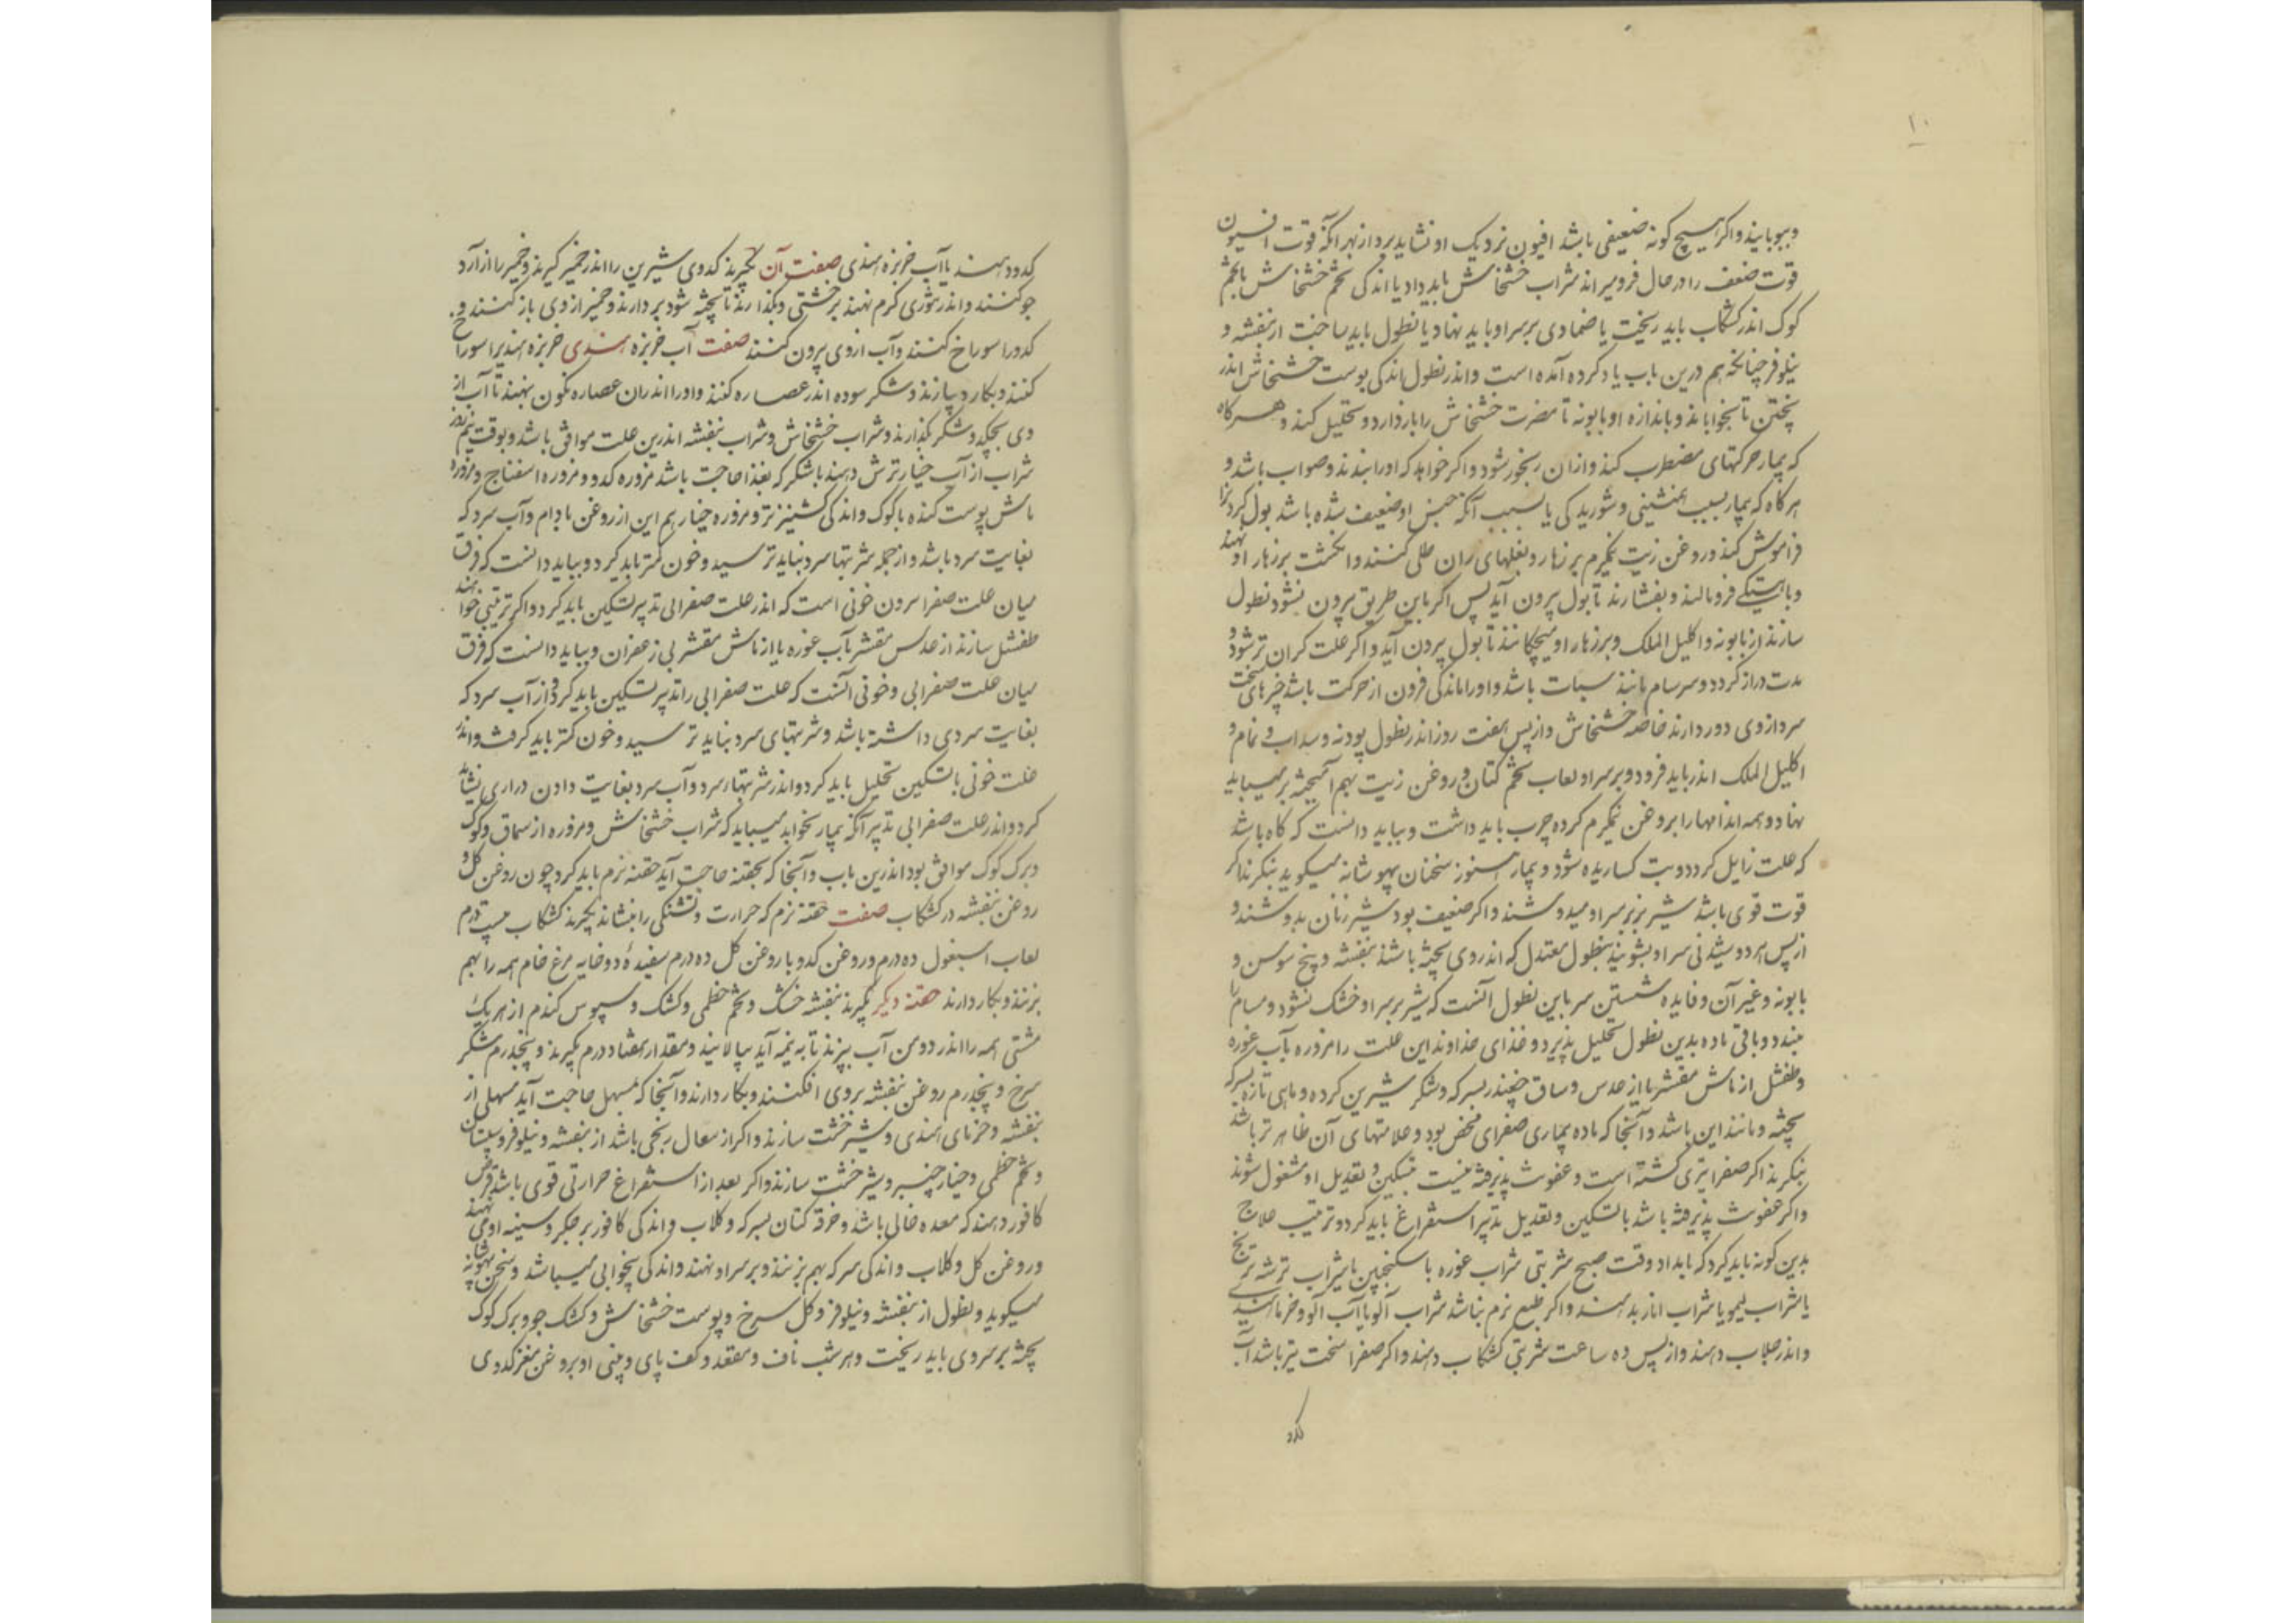 ۱۰
وببویانیند واکر هیچ کونه ضعیفی باشد افیون نزدیک او نشاید برد از بهر آنکه قوت افیون
قوت ضعف را در حال فرو میراند شراب خشخاش باید داد یا اندکی تخم خشخاش با تخم
کوک اندر کشکاب باید ریخت یا ضمادی بر سر او باید نهاد یا نطول باید ساخت از بنفشه و
نیلوفر چنانکه هم درین باب یاد کرده آمده است واندر نطول اندکی پوست خشخاش اندر
پختن تا بخواباند وباندازه او بابونه تا مضرت خشخاش را باز دارد و تحلیل کند و هر کاه
که بیمار حرکتهای مضطرب کند و از ان رنجور شود واکر خواهد که اورا بندند وصواب باشد و
هر کاه که بیمار بسبب منشینی وشوریدکی یا بسبب آنکه حس او ضعیف شده باشد بول کردن
فراموش کند وروغن زیت نیمکرم بر زهار وبغلهای ران طلی کنند وانکشت بر زهار او نهند
وباهستکی فرو مالند وبفشارند تا بول بیرون آید پس اکر باین طریق بیرون نشود نطول
سازند از بابونه واکلیل الملک وبر زهار او میچکانند تا بول بیرون آید واکر علت کران تر شود و
مدت دراز کردد وسرسام مانند سبات باشد واورا اندکی فزون از حرکت باشد چیزهای سخت
سرد از وی دور دارند خاصه خشخاش واز پس هفت روز اندر نطول پودنه وسداب ونمام و
اکلیل الملک اندر باید فزود وبر سر او لعاب تخم کتان و روغن زیت بهم آمیخته بر میباید
نهاد وهمه اندامها را بروغن نیمکرم کرده چرب باید داشت وبباید دانست که کاه باشد
که علت زایل کردد وبت کساریده شود وبیمار هنوز سخنان بیهوشانه میکوید بنکرند اکر
قوت قوی باشد شیر بز بر سر او میدوشند واکر ضعیف بود شیر زنان بدوشند و
از پس هر دوشیدنی سر او بشویند بنطول معتدل که اندر وی پخته باشند بنفشه وبیخ سوسن و
بابونه وغیر آن وفایده شستن سر باین نطول آنست که شیر بر سر او خشک نشود ومسام را
نبندد وباقی ماده بدین نطول تحلیل پذیرد وغذای خداوند این علت را مزوره بآب غوره
وطفشل از ماش مقشر یا از عدس وساق چغندر بسرکه وشکر شیرین کرده وماهی تازه بسرکه
پخته ومانند این باشد وآنجا که ماده بیماری صفرای محض بود وعلامتهای آن ظاهر تر باشد
بنکرند اکر صفرا تیزی کشته است وعفونت پذیرفته نیست بتسکین و تعدیل او مشغول شوند
واکر عفونت پذیرفته باشد با تسکین وتعدیل تدبیر استفراغ باید کرد وترتیب علاج
بدین کونه باید کرد که بامداد وقت صبح شربتی شراب غوره با سکنجبین یا شراب ترشه ترنج
یا شراب لیمو یا شراب انار بدهند واکر طبع نرم نباشد شراب آلو یا آب آلو وخرما هندی
واندر جلاب دهند واز پس ده ساعت شربتی کشکاب دهند واکر صفرا سخت تیز باشد آب
کدو
کدو دهند یا آب خربزه هندی صفت آن بکیرند کدوی شیرین را اندر خمیر کیرند وخمیر را از آرد
جو کنند واندر تنوری کرم نهند بر خشتی وبکذارند تا پخته شود بر دارند وخمیر از وی باز کنند و
کدو را سوراخ کنند وآب از وی بیرون کنند صفت آب خربزه هندی خربزه هندیرا سوراخ
کنند وبکارد بیازنند وشکر سوده اندر عصاره کنند واورا اندران عصاره نکون بنهند تا آب از
وی بچکد وشکر بکدازند وشراب خشخاش وشراب بنفشه اندرین علت موافق باشد وبوقت نیم روز
شراب از آب خیار ترش دهند با شکر که بغذا حاجت باشد مزوره کدو ومزوره اسفناج ومزوره
ماش پوست کنده با کوک واندکی کشنیز تر ومزوره خیار هم این از روغن بادام وآب سرد که
بغایت سرد باشد واز جمله شربتها سرد نباید ترسید وخون کمتر باید کرد وبباید دانست که فرق
میان علت صفرا بیرون خونی است که اندر علت صفرایی تدبیر تسکین باید کرد واکر ترتیبی خواهند
طفشل سازند از عدس مقشر بآب غوره یا از ماش مقشر بی زعفران وبباید دانست که فرق
میان علت صفرایی وخونی آنست که علت صفرایی را تدبیر تسکین باید کرد و از آب سرد که
بغایت سردی داشته باشد وشربتهای سرد نباید ترسید وخون کمتر باید کرفت واندر
علت خونی با تسکین تحلیل باید کرد واندر شربتهاء سرد وآب سرد بغایت دادن دراری نشاید
کرد واندر علت صفرایی تدبیر آنکه بیمار بخوابد میباید که شراب خشخاش ومزوره از سماق وکوک
وبرک کوک موافق بود اندرین باب وآنجا که بحقنه حاجت آید حقنه نرم باید کرد چون روغن کل و
روغن بنفشه در کشکاب صفت حقنه نرم که حرارت وتشنکی را بنشاند بکیرند کشکاب بیست درم
لعاب اسبغول ده درم وروغن کدو با روغن کل ده درم سفیدهٔ دو خایه مرغ خام همه را بهم
بزنند وبکار دارند حقنه دیکر بکیرند بنفشه خشک وتخم خطمی وکشک وسبوس کندم از هر یک
مشتی همه را اندر دو من آب بپزند تا به نیمه آید بپالایند ومقدار هفتاد درم بکیرند وپنجدرم شکر
سرخ وپنجدرم روغن بنفشه بروی افکنند وبکار دارند وآنجا که بمسهل حاجت آید مسهلی از
بنفشه وخرمای هندی وشیر خشت سازند واکر از سعال رنجی باشد از بنفشه ونیلوفر وسپستان
وتخم خطمی وخیار چنبر وشیر خشت سازند واکر بعد از استفراغ حرارتی قوی باشد قرص
کافور دهند که معده خالی باشد وخرقه کتان بسرکه وکلاب واندکی کافور بر جکر وسینه او می نهند
وروغن کل وکلاب واندکی سرکه بهم بزنند وبر سر او نهند واندکی بیخوابی میباشد وسخن بیهوشانه
میکوید ونطول از بنفشه ونیلوفر وکل سرخ وپوست خشخاش وکشک جو وبرک کوک
پخته بر سر وی باید ریخت وهر شب ناف ومقعد وکف پای وبینی او بروغن مغز کدوی